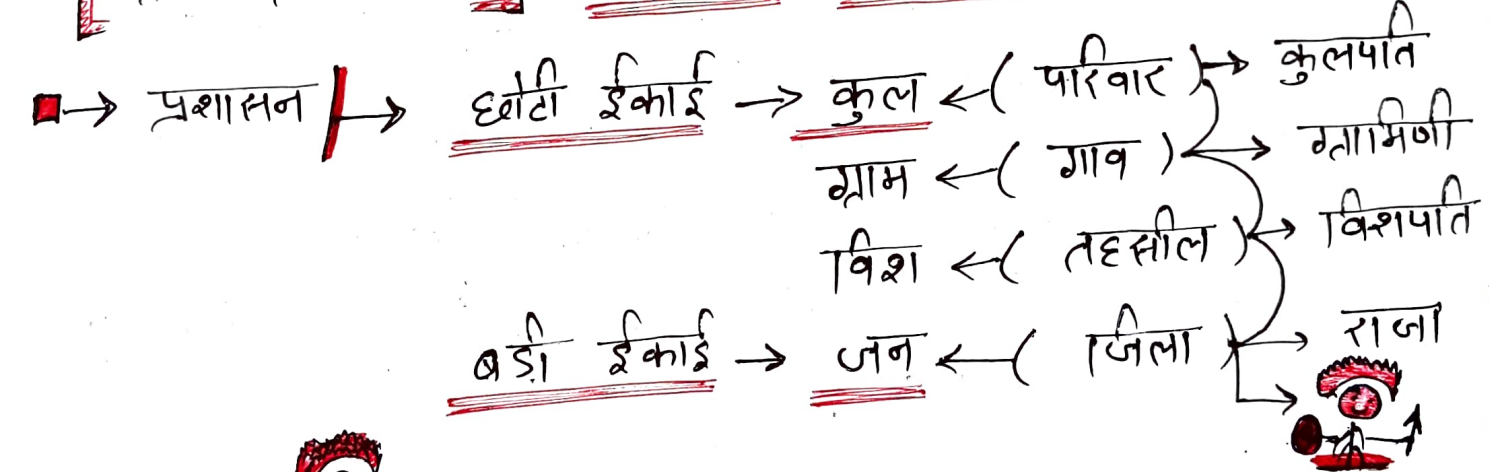 प्रशासन → छोटी ईकाई → कुल ← ( परिवार ) → कुलपति
ग्राम ← ( गाव ) → ग्रामिणी
विश ← ( तहसील ) → विशपति
बडी ईकाई → जन ← ( जिला ) → राजा